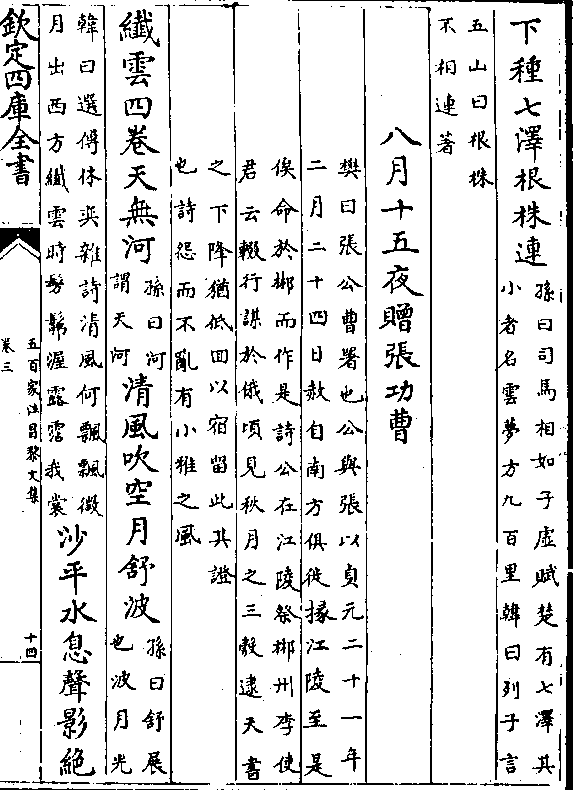 下種七澤根株連
孫曰司馬相如子虛賦楚有七澤其
小者名雲夢方九百里韓曰列子言
五山曰根株
不相連著
八月十五夜贈張功曹
樊曰張公曹署也公與張以貞元二十一年
二月二十四日赦自南方俱徙掾江陵至是
俟命於郴而作是詩公在江陵祭郴州李使
君云輟行謀於俄頃見秋月之三彀逮天書
之下降猶低回以宿留此其證
也詩怨而不亂有小雅之風
纖雲四卷天無河
孫曰河
謂天河
清風吹空月舒波
孫曰舒展
也波月光
韓曰選傅休奕雜詩清風何飄飄微
月出西方纖雲時髣髴渥露霑我裳
沙平水息聲影絕
欽定四庫全書
五百家注昌黎文集
卷三
十四